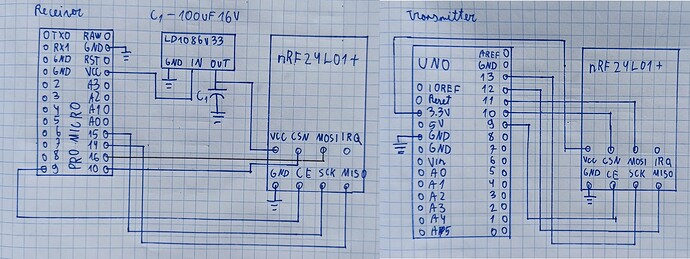 Receiver
C1 - 100uF 16V
TX0 RAW
RX1 GND
GND RST
GND VCC
2 A3
3 A2
4 A1
5 A0
6 15
7 14
8 16
9 10
PRO MICRO
LD1086V33
GND IN OUT
C1
nRF24L01+
VCC CSN MOSI IRQ
GND CE SCK MISO
Transmitter
UNO
AREF
GND
13
IOREF 12
Reset 11
3.3V 10
5V 9
GND 8
GND 7
Vin 6
A0 5
A1 4
A2 3
A3 2
A4 1
A5 0
nRF24L01+
VCC CSN MOSI IRQ
GND CE SCK MISO